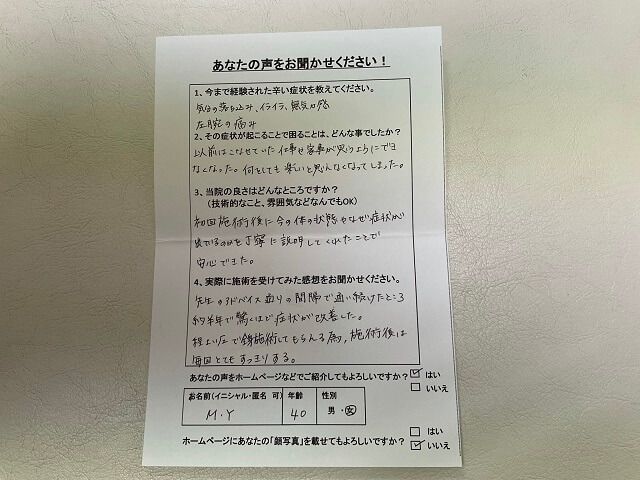 あなたの声をお聞かせください！
1、今まで経験された辛い症状を教えてください。
気分の落ち込み、イライラ、無気力感
左腕の痛み
2、その症状が起こることで困ることは、どんな事でしたか？
以前はこなせていた仕事や家事が思うようにでき
なくなった。何をしても楽しいと思えなくなってしまった。
3、当院の良さはどんなところですか？
（技術的なこと、雰囲気などなんでもOK）
初回施術後に今の体の状態やなぜ症状が
出ているのかを丁寧に説明してくれたことで
安心できた。
4、実際に施術を受けてみた感想をお聞かせください。
先生のアドバイス通りの間隔で通い続けたところ
約半年で驚くほど症状が改善した。
程よい圧で施術してもらえる為、施術後は
毎回とてもすっきりする。
あなたの声をホームページなどでご紹介してもよろしいですか？ はい
いいえ
お名前（イニシャル・匿名 可） 年齢 性別
M.Y 40 男・女
ホームページにあなたの「顔写真」を載せてもよろしいですか？ はい
いいえ